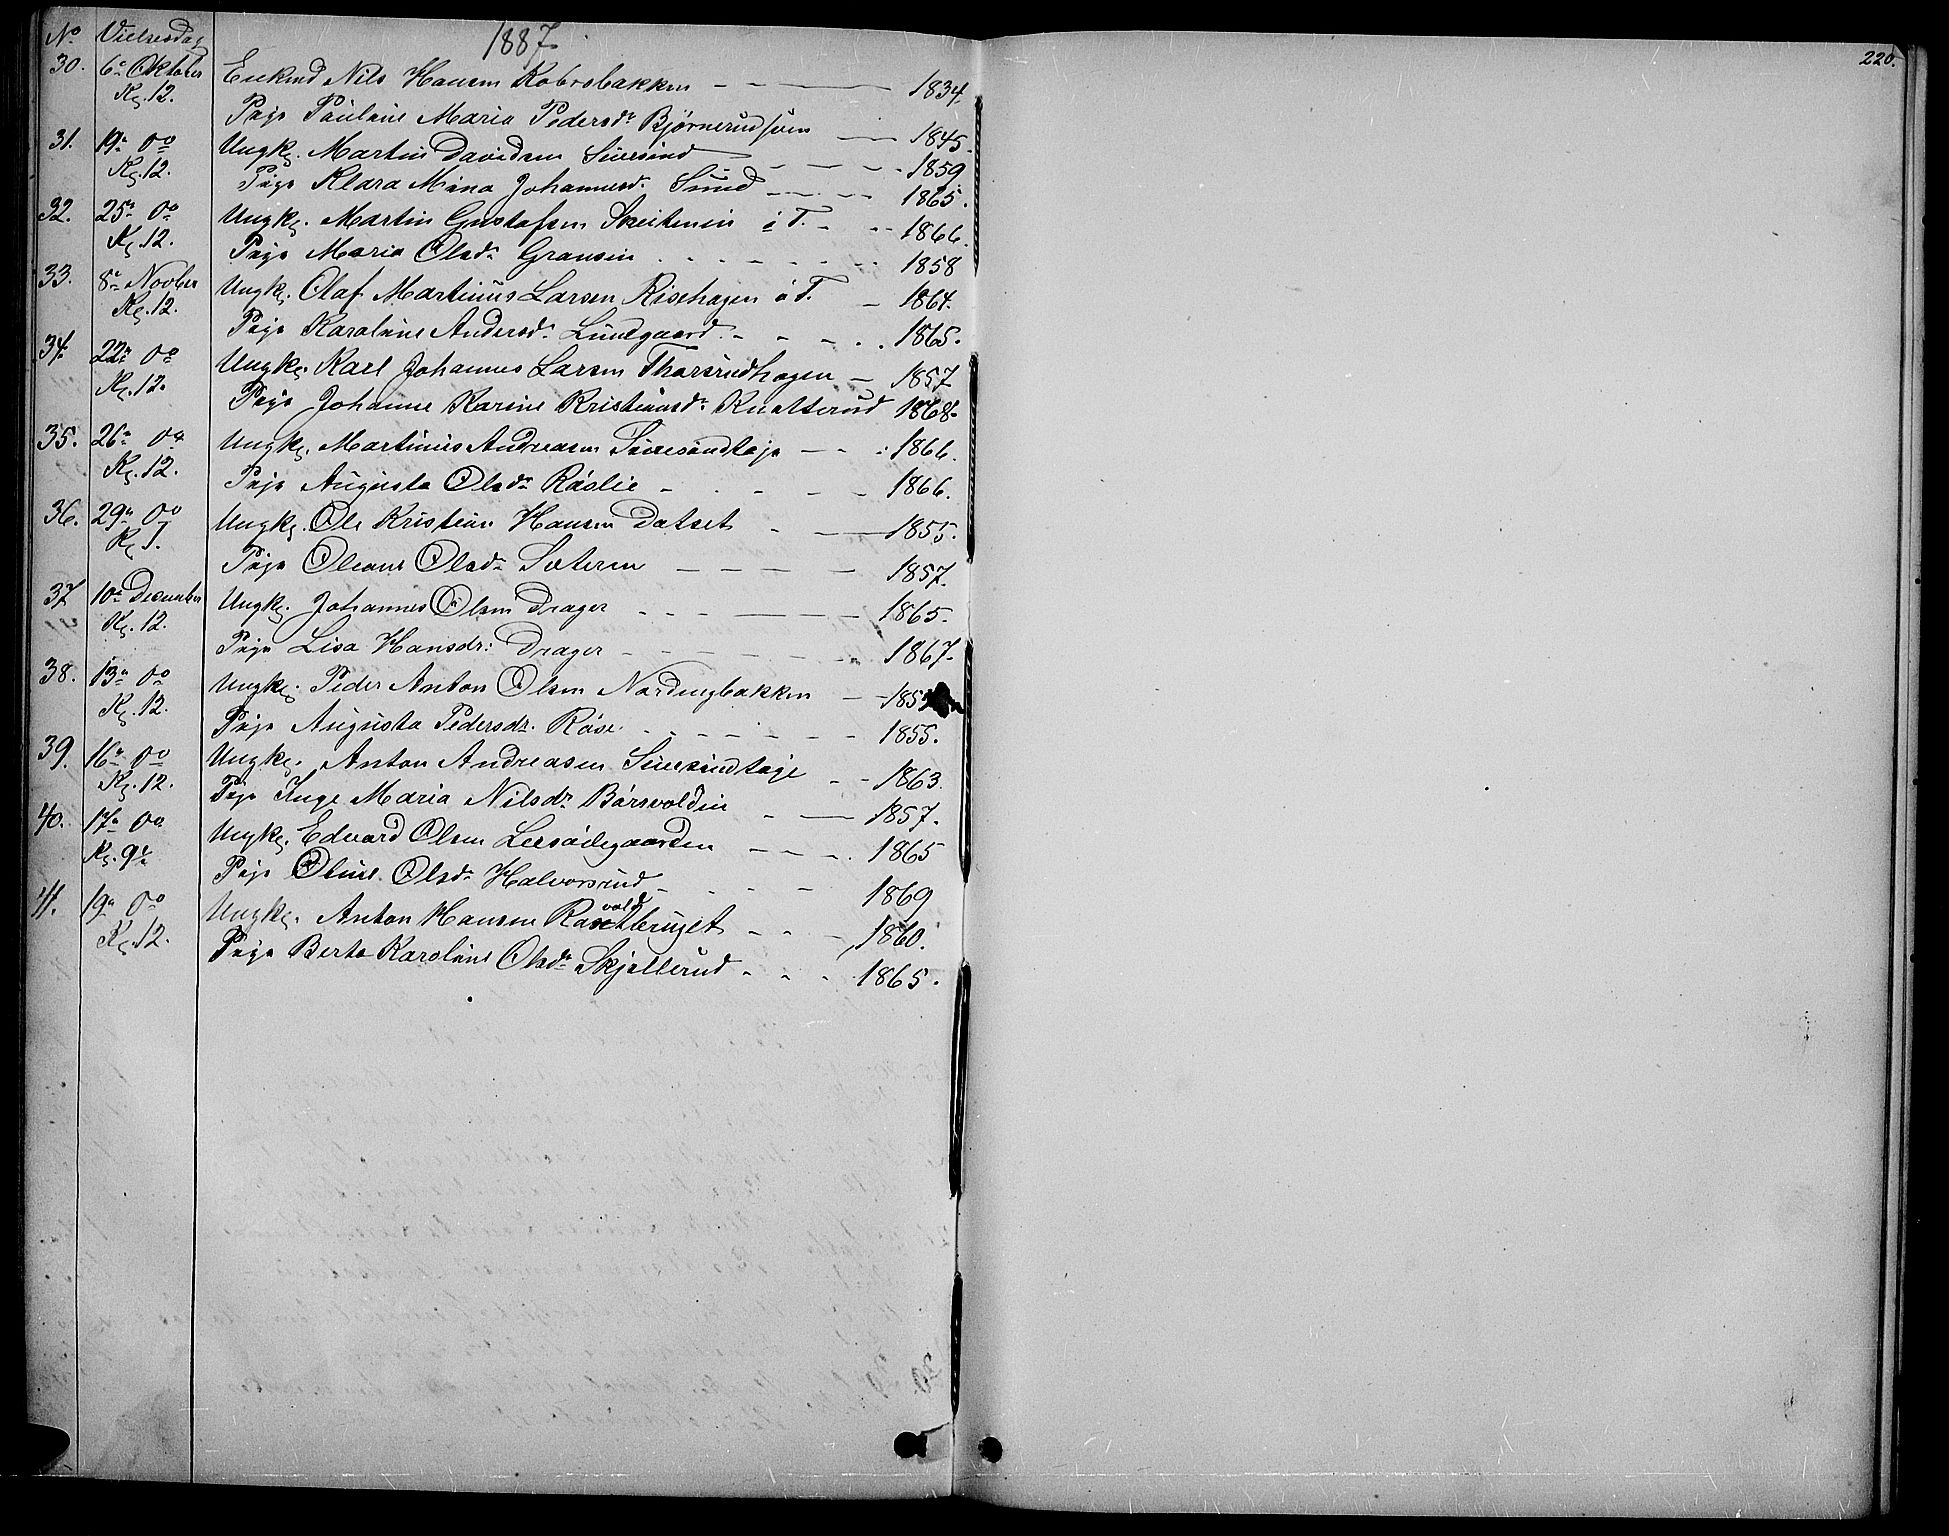 No Vielsesdag 1887.
30. 6te Oktober Enkmd Nils Hansen Kobrobakken 1834.
Kl. 12.
Pige Pauline Maria Pedersdr Bjørnerudsveen 1845.
31. 19de do Ungk. Martin Davidsen Sivesind 1859
Kl. 12. Pige Klara Mina Johannesd. Sund 1865.
32. 25de do Ungk. Martin Gustafsen Skeiteneie i T. 1866.
Kl. 12. Pige Maria Olsdr Granseie 1858
33. 8de Novbr Ungk. Olaf Martinus Larsen Risehagen i T. 1864.
Kl. 12. Pige Karoline Andersdr Lundgaard 1865.
34. 22de do Ungk. Karl Johannes Larsen Thorsrudhagen 1857
Kl. 12. Pige Johanne Karine Kristiansdr Knatterud 1868.
35. 26de do Ungk. Martinius Andreasen Sivesindteje 1866.
Kl. 12. Pige Augusta Olsdr Råslie 1866.
36. 29de do Ungk. Ole Kristian Hansen Datset 1855.
Kl. 1. Pige Oleane Olsdr Sæteren 1857.
37 10de December Ungk. Johannes Olsen Drager 1865.
Kl. 12. Pige Lisa Hansdr: Drager 1867.
38. 13de do Ungk. Peder Anton Olsen Nordengbakken 185
Kl. 12. Pige Augusta Pedersdr. Råse 1855.
39. 16de do Ungk. Anton Andreasen Sivesindteje 1863.
Kl. 12. Pige Inge Maria Nilsdr Bårsvoldeie 1857.
40. 17de do. Ungk. Edvard Olsen Leesødegaarden 1865
Kl. 9½ Pige Oline Olsdr Halvorsrud 1869
41. 19de do vold
Ungk. Anton Hansen Rosetbruget 1860.
Kl. 12. Pige Berte Karoline Olsdr Skjelterud 1865.
220.